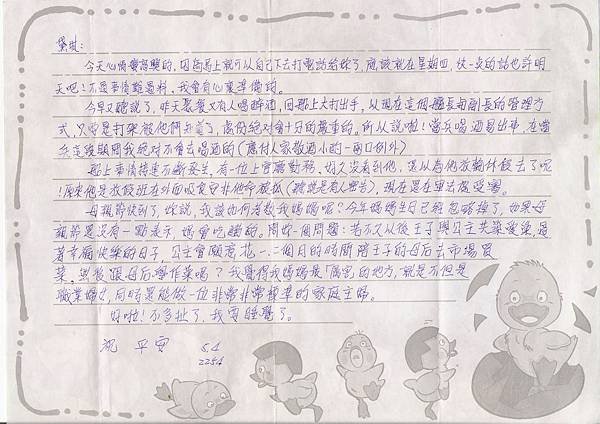 今天心情蠻高興的,因為馬上就可以自己下去打電話給妳了,應該就在星期四,快一點的話也許明
天吧!不過事情難逆料,我會有心裏準備的。
今早又聽說了,昨天晚餐又有人喝醉酒,回船上大打出手,以現在這個艦長與副長的管理方
式,只要是打架被他們知道了,處份絕對會十分的嚴重的。所以說啦!當兵喝酒易出事,在當
兵這段期間我絕對不會去喝酒的(應付人家敬酒小酌一兩口例外)
船上事情接連不斷發生,有一位上官廳勤務,好久沒看到他,還以為他放榮休假去了呢
!原來他是放假在外面吸食安非他命被抓(聽說是有人密告),現在還在軍法處受審。
母親節快到了,妳說,我該如何孝敬我媽媽呢?今年媽媽生日已經忽略掉了,如果母
親節還沒有一點表示,媽會吃醋的。問妳一個問題:若不久以後王子與公主共築愛巢,過
著幸福快樂的日子,公主會願意花一、二個月的時間陪王子的母后去市場買
菜,然後跟母后學作菜嗎?我覺得我媽媽最「厲害」的地方,就是不但是
職業婦女,同時還能做一位非常非常標準的家庭主婦。
好啦!不多扯了,我要睡覺了。
祝 平安
5.4
2254